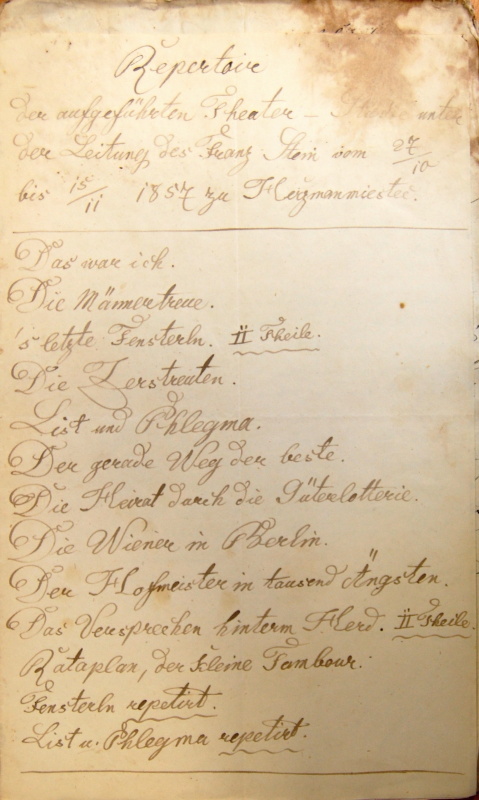 Repertoire
der aufgeführten Theater - Stücke unter
der Leitung des Franz Stein vom 27/10
bis 15/11 1857 zu
Das war ich.
Die Männertreue.
's letzte Fensterln. II Theile.
Die Zerstreuten.
List und Phlegma.
Der gerade Weg der beste.
Die Heirat durch die Güterlotterie.
Die Wiener in Berlin.
Der Hofmeister in tausend Ängsten.
Das Versprechen hinterm Herd. II Theile.
Rataplan, der kleine Tambour.
Fensterln repetirt.
List u. Phlegma repetirt.